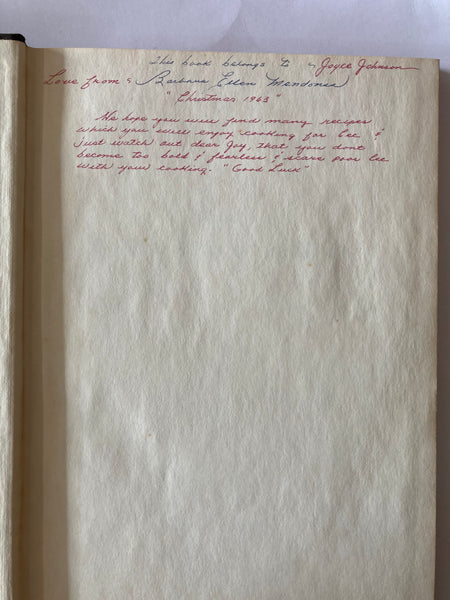 This book belongs to Joyce Johnson
Love from Barbara Ellen Mendonsa
"Christmas 1963"
We hope you will find many recipes
which you will enjoy cooking for Lee &
just watch out dear Joy, that you dont
become too bold & fearless & scare poor Lee
with your cooking. "Good Luck"